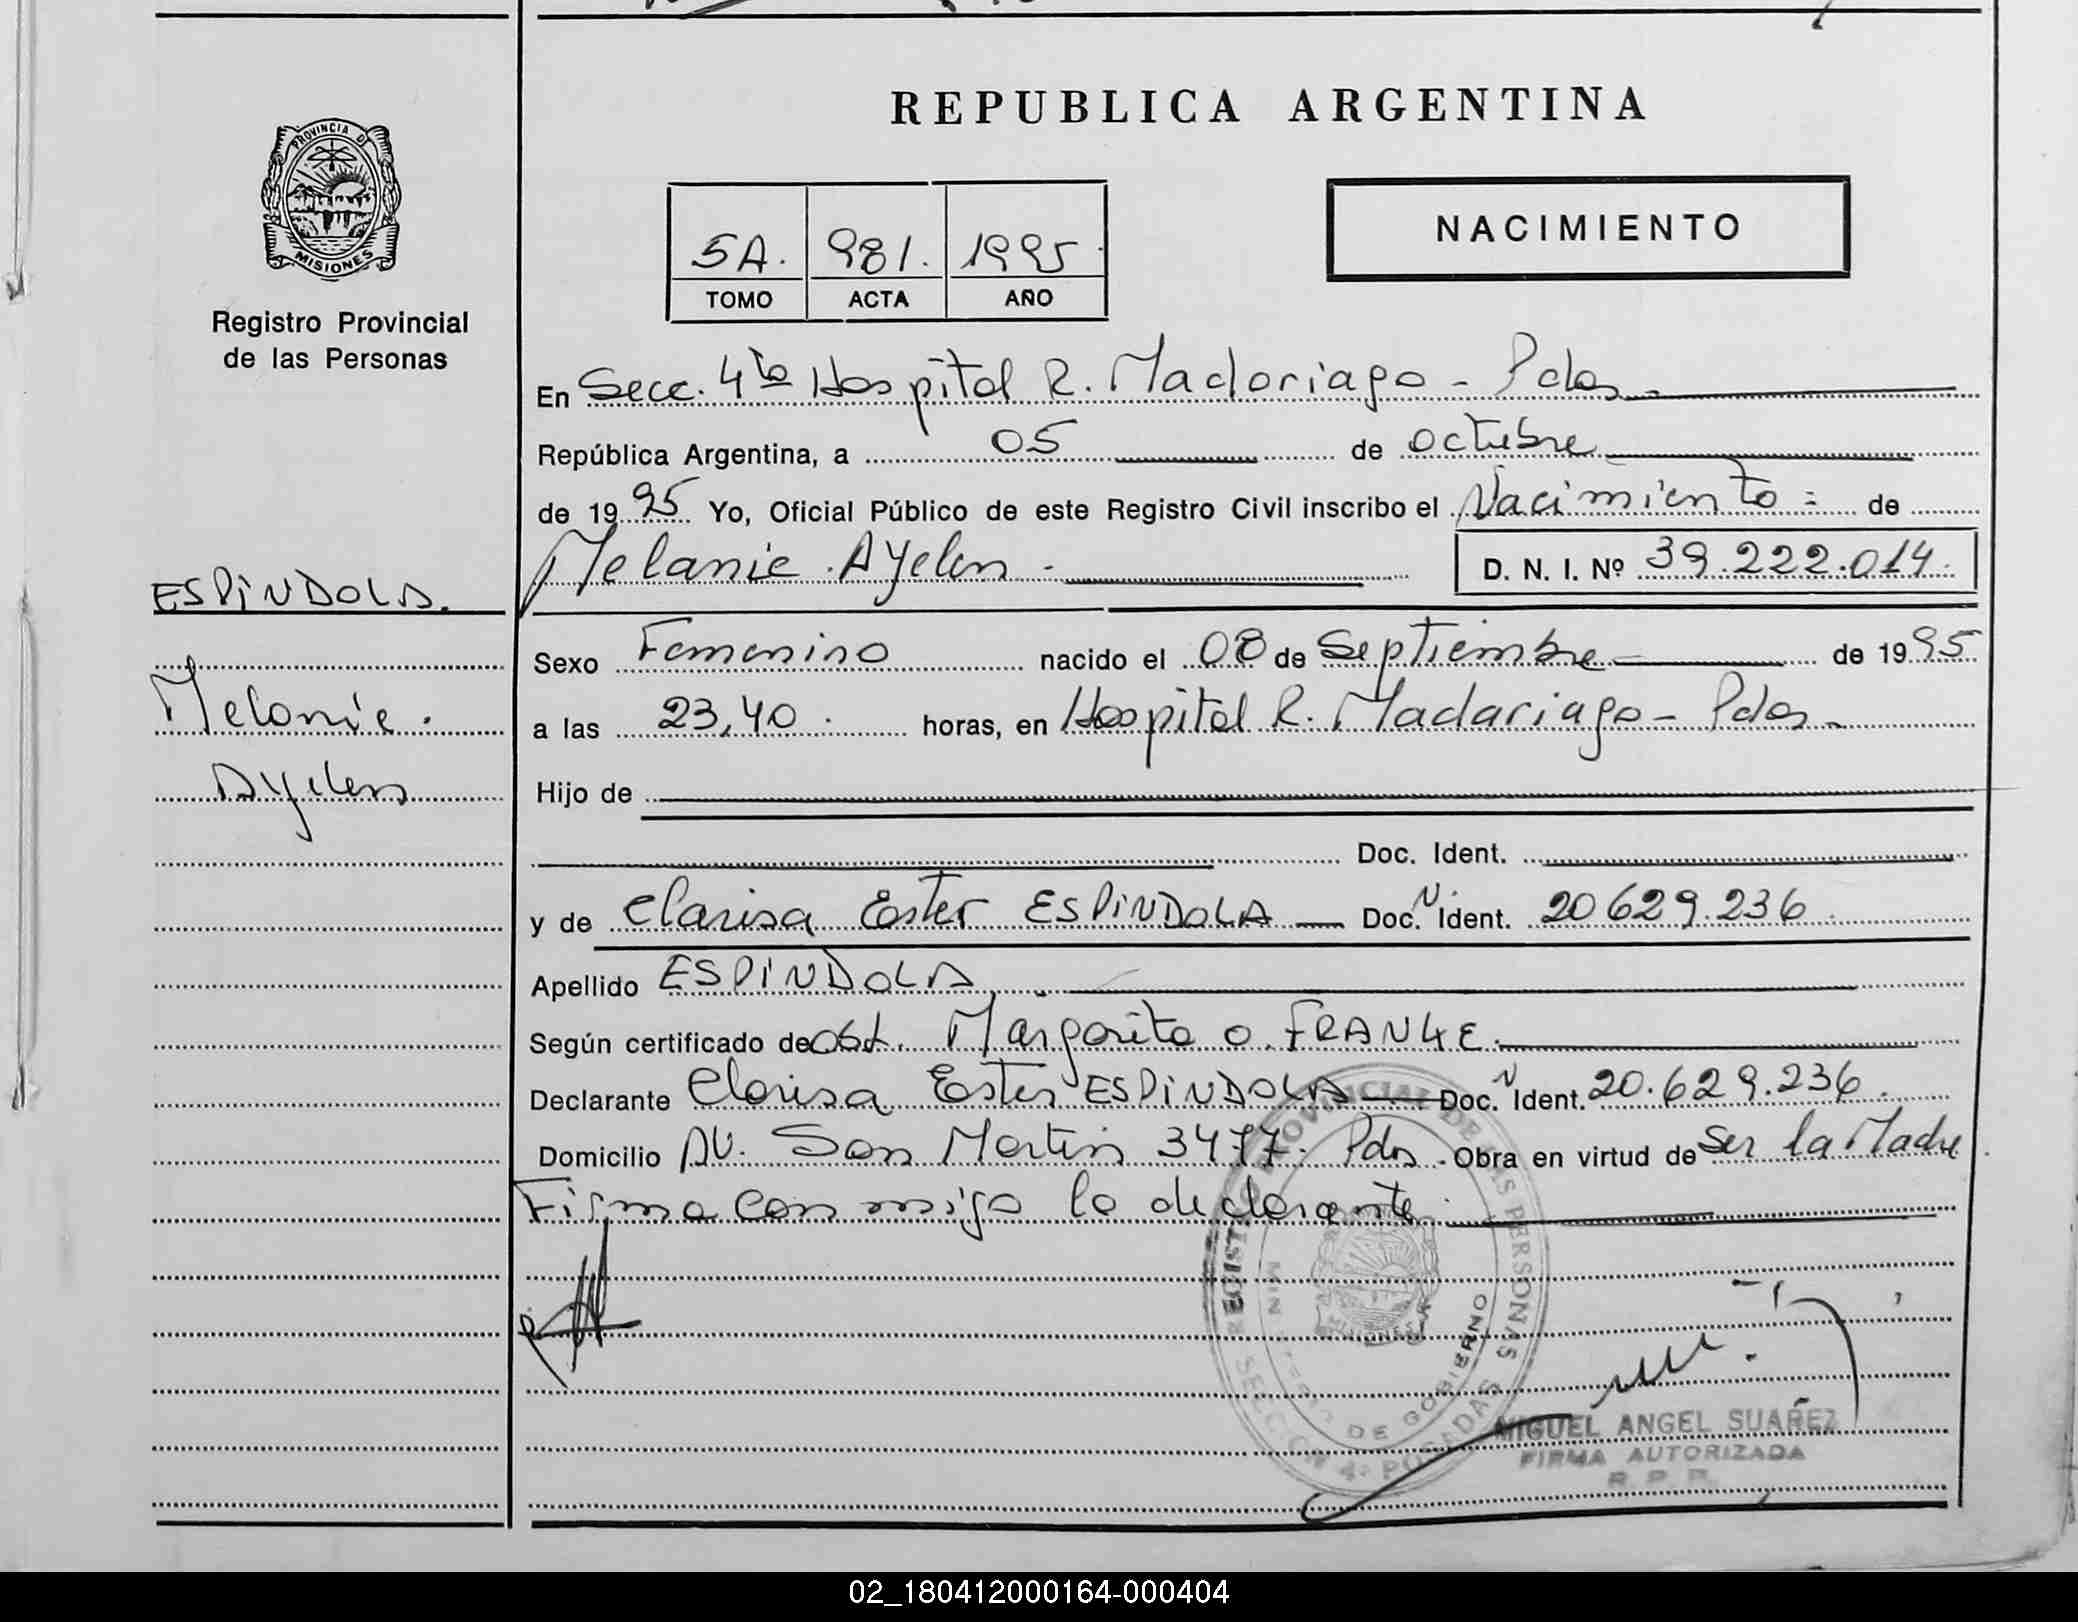 REPUBLICA ARGENTINA
PROVINCIA DE
MISIONES
Registro Provincial
de las Personas
NACIMIENTO
5A. 981. 1995.
TOMO ACTA AÑO
En Secc. 4ta Hospital R. Madariaga - Pdas -
República Argentina, a 05 de octubre
de 1995 Yo, Oficial Público de este Registro Civil inscribo el Nacimiento = de
Melanie Ayelen - D. N. I. Nº 39.222.014.
ESPINDOLA.
Melanie.
Ayelen
Sexo Femenino nacido el 08 de Septiembre de 1995
a las 23,40. horas, en Hospital R. Madariaga - Pdas -
Hijo de
Doc. Ident.
y de Clarisa Ester ESPINDOLA — Doc. N Ident. 20 629.236.
Apellido ESPINDOLA
Según certificado de obst. Margarita O. FRANKE.
Declarante Clarisa Ester ESPINDOLA Doc. N Ident. 20.629.236.
Domicilio AV. San Martin 3477. Pdas. Obra en virtud de ser la Madre
Firma conmigo la declarante.
REGISTRO PROVINCIAL DE LAS PERSONAS
MINISTERIO DE GOBIERNO
SECCION 4ª POSADAS
MIGUEL ANGEL SUAREZ
FIRMA AUTORIZADA
R. P. P.
02_180412000164-000404